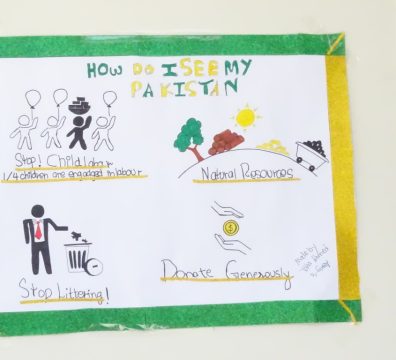 HOW DO I SEE MY
PAKISTAN
Stop! Child labour
1/4 children are engaged in labour
Natural Resources
$
Stop Littering!
Donate Generously
Made by